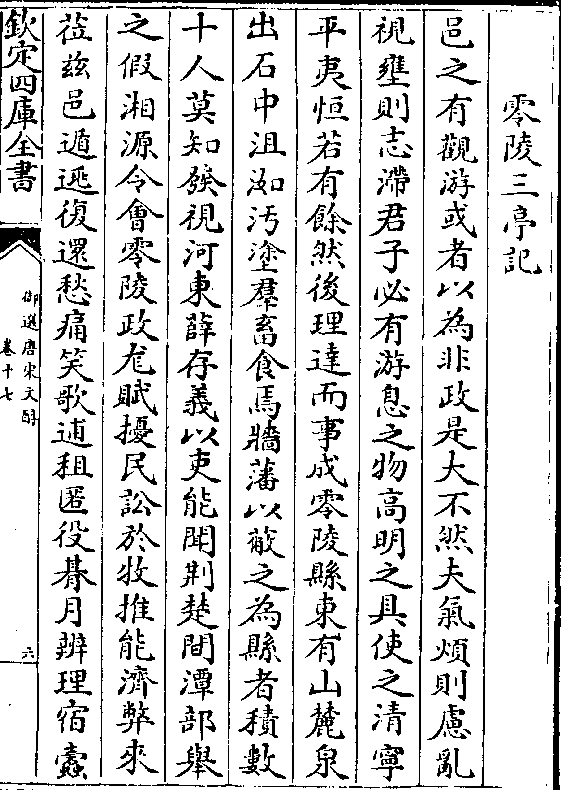 零陵三亭記
邑之有觀游或者以為非政是大不然夫氣煩則慮亂
視壅則志滯君子必有游息之物高明之具使之清寧
平夷恒若有餘然後理達而事成零陵縣東有山麓泉
出石中沮洳汚塗羣畜食焉牆藩以蔽之為縣者積數
十人莫知發視河東薛存義以吏能聞荆楚間潭部舉
之假湘源令會零陵政厖賦擾民訟於牧推能濟弊來
莅兹邑遁逃復還愁痛笑歌逋租匿役朞月辨理宿蠹
欽定四庫全書
御選唐宋文醇
卷十七
六